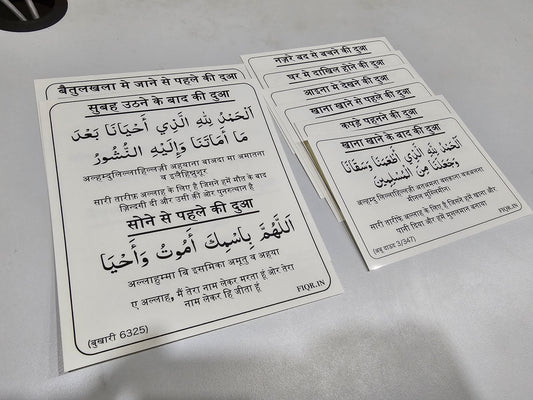 बैतुलखला मे जाने से पहले की दुआ
सुबह उठने के बाद की दुआ
اَلْحَمْدُ لِلّٰهِ الَّذِي أَحْيَانَا بَعْدَ
مَا أَمَاتَنَا وَإِلَيْهِ النُّشُورُ
अल्हम्दुलिल्लाहिल्लज़ी अहयाना बाअदा मा अमातना
व इलैहिन्नुशूर
सारी तारीफ़ अल्लाह के लिए है जिसने हमें मौत के बाद
ज़िन्दगी दी और उसी की ओर पुनरुत्थान है
सोने से पहले की दुआ
اَللّٰهُمَّ بِاسْمِكَ أَمُوتُ وَأَحْيَا
अल्लाहुम्मा बि इसमिका अमूतु व अहया
ए अल्लाह, मैं तेरा नाम लेकर मरता हूं और तेरा
नाम लेकर हि जीता हूं
FIQR.IN
(बुखारी 6325)
नज़रे बद से बचने की दुआ
घर में दाखिल होने की दुआ
आइना में देखने की दुआ
खाना खाने से पहले की दुआ
कपड़े पहनने की दुआ
खाना खाने के बाद की दुआ
اَلْحَمْدُ لِلّٰهِ الَّذِي أَطْعَمَنَا وَسَقَانَا
وَجَعَلَنَا مِنَ الْمُسْلِمِينَ
अल्हम्दु लिल्लाहिल्लज़ी अतअमना वसकाना वजअलना
मीनल मुस्लिमीन।
सारी तारीफें अल्लाह के लिए है जिसने हमें खाना और
पानी दिया और हमें मुसलमान बनाया
FIQR.IN
(अबू दाऊद 3/347)